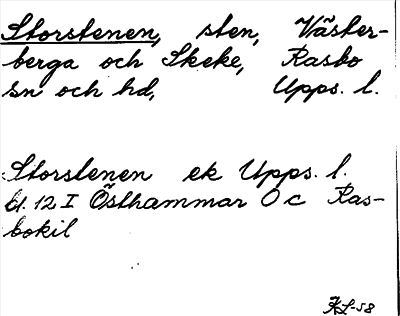 Storstenen, sten, Väster-
berga och Skeke, Rasbo
sn och hd, Upps. l.
Storstenen ek Upps. l.
bl. 12 I Östhammar O c Ras-
bokil
KL-58